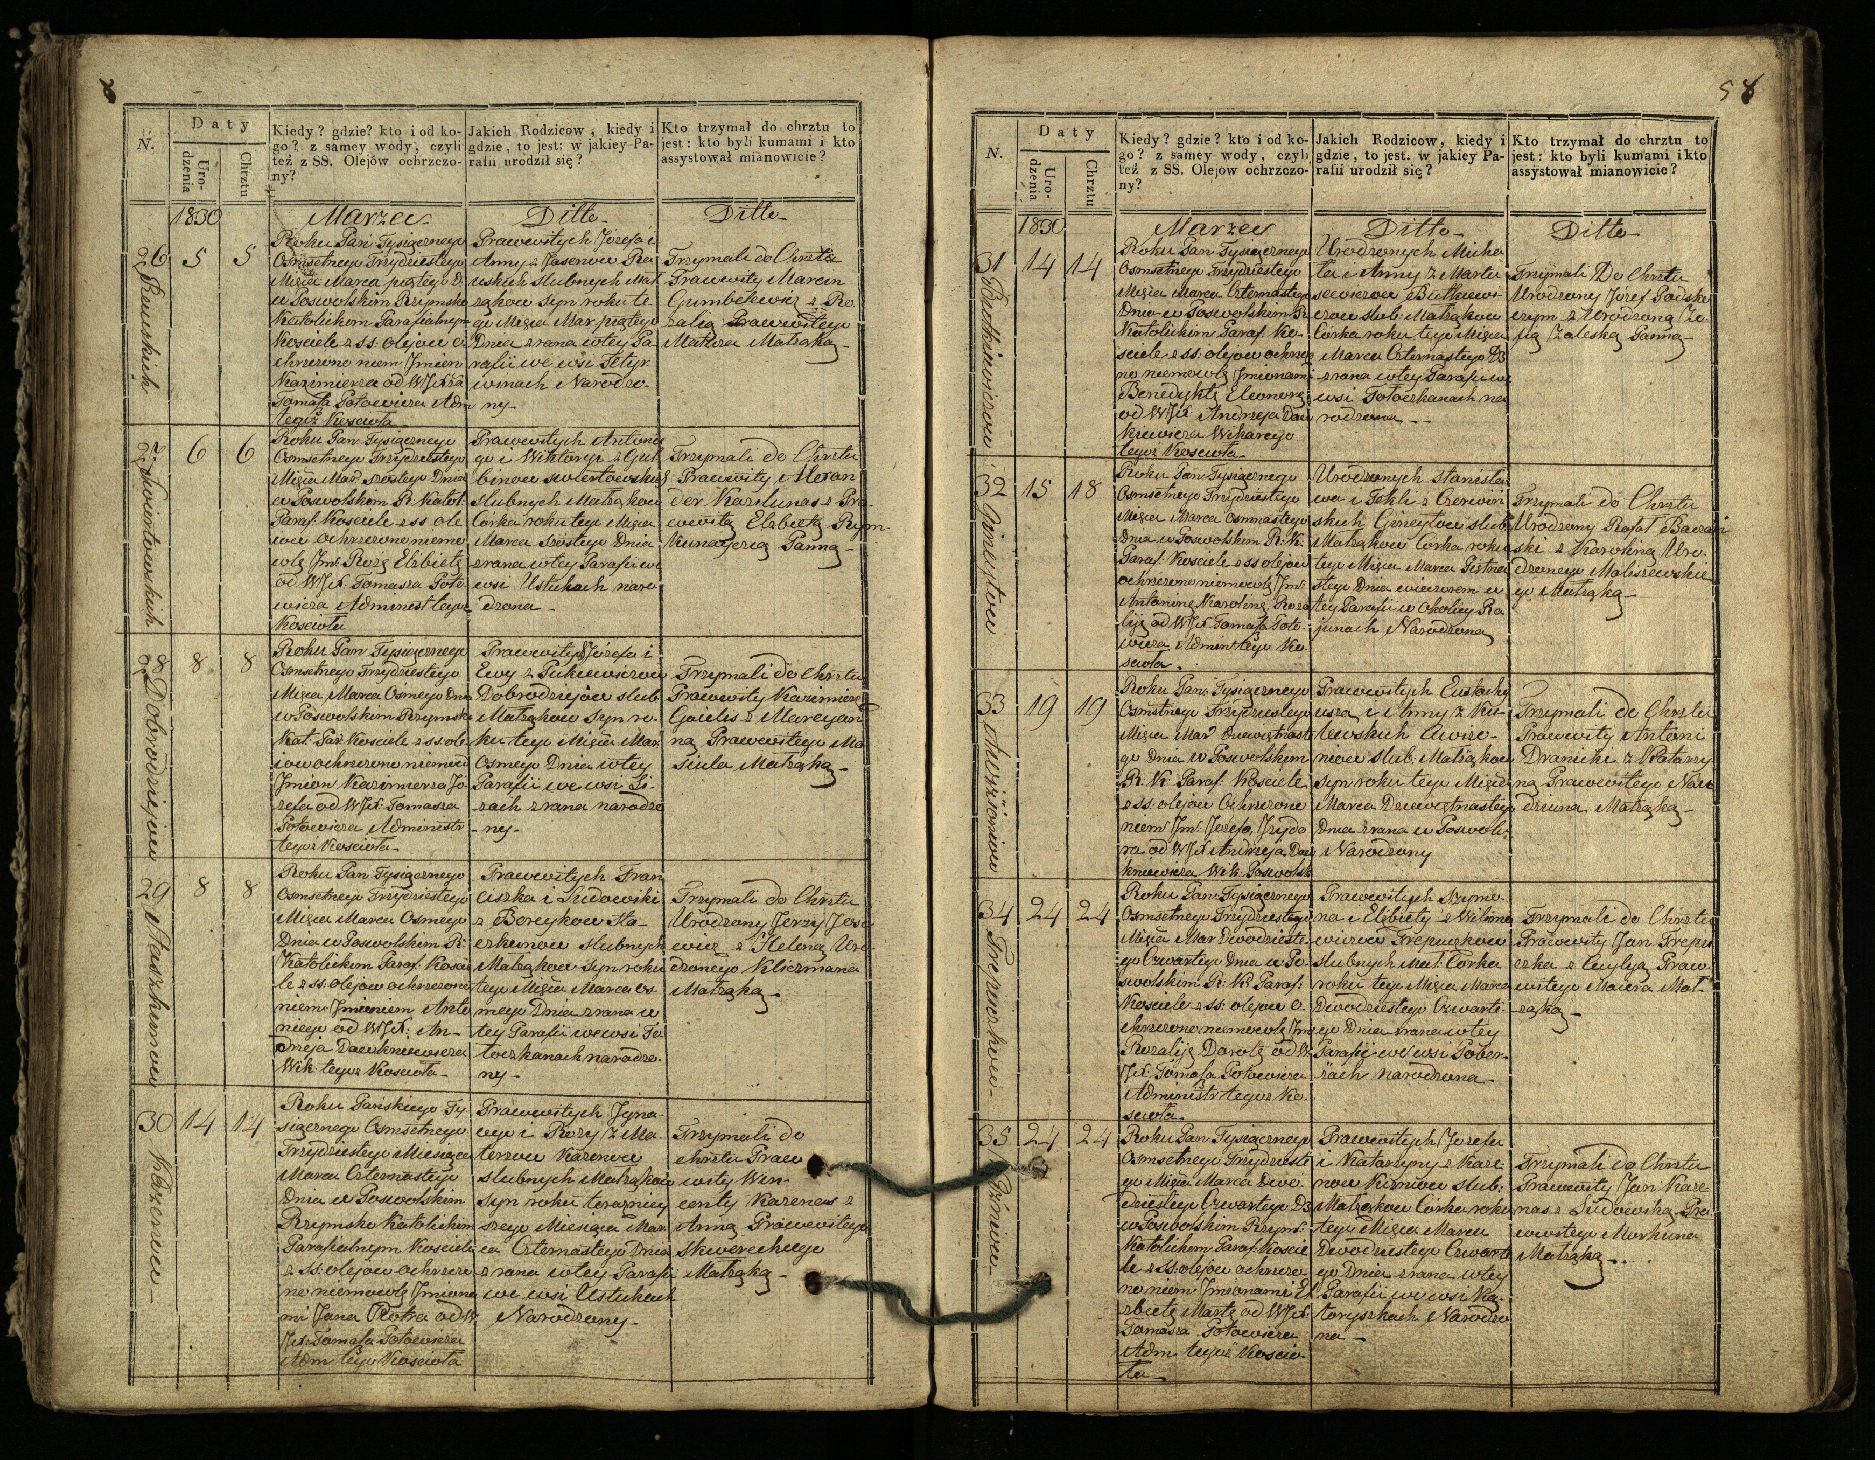 8
N.
Daty
Uro-
dzenia
Chrztu
Kiedy? gdzie? kto i od ko-
go? z samey wody, czyli
też z SS. Olejów ochrzczo-
ny?
Jakich Rodzicow, kiedy i
gdzie, to jest: w jakiey Pa-
rafii urodził się?
Kto trzymał do chrztu to
jest: kto byli kumami i kto
assystował mianowicie?
1830
Marzec
Ditto
Ditto
26
5
5
Roku Pań Tysiącznego
Osmsetnego Trzydziestego
Miśca Marca piątego D.
w Poswolskim Rzymsko
Katolickim Parafialnym
Kosciele z ss. olejow o
chrzczono niem Jmien
Kazimierza od WJX
Tomasza Potowicza Adm
tegoż Koscioła
Prawowitych Józefa i
Anny z
slubnych Mał
żąkow Syn roku te
go Miśca Mar piątego
Dnia zrana wtey Pa
rafii we wsi
Narodzo
ny
Trzymali do Chrztu
Prawowity Marcin
z Ro
zalią Prawowitego
Małżąką
27
6
6
Roku Pan Tysiącznego
Osmsetnego Trzydziestego
Miśca Mar Szostego Dnia
w Poswolskim R. Katol.
Paraf. Kosciele z ss ole
iow ochrzczono niemo
wlę Jm. Rozę Elzbietę
od WJX Tomasza Poto
wicza Administ tegoż
Koscioła
Prawowitych Antonie
go i Wiktoryi z
slubnych Małżąkow
Córka roku tego Miśca
Marca Szostego Dnia
zrana wtey Parafii we
wsi Ustukach naro
dzona
Trzymali do Chrztu
Prawowity Alexan
der Karolunas z Pra
wowitą Elzbietą
Panną
28 Dobrodziejow
8
8
Roku Pan Tysiącznego
Osmsetnego Trzydziestego
Miśca Marca Osmego Dnia
w Poswolskim Rzymsk
Kat. Par Kosciele z ss ole
iow ochrzczono niemow
Jmion Kazimierza Jó
zefa od WJX Tomasza
Potowicza Administr
tegoż Koscioła
Prawowitych Józefa i
Ewy z
Dobrodziejow slub
Małżąkow Syn ro
ku tego Miśca Mar
Osmego Dnia wtey
Parafii we wsi
zrana narodzo
ny
Trzymali do Chrztu
Prawowity Kazimierz
Gailis z Maryan
ną Prawowitego
Małżąką
29
8
8
Roku Pan Tysiącznego
Osmsetnego Trzydziestego
Miśca Marca Osmego
Dnia w Poswolskim R.
Katolickim Paraf. Kosci
le z ss. olejow ochrzczono
niem Jmieniem Anto
niego od WJX. An-
drzeja Daczkiewicza
Wik. tegoż Koscioła
Prawowitych Fran
ciszka i Ludowiki
z
slubnych
Małżąkow Syn roku
tego Miśca Marca Os
mego Dnia zrana w
tey Parafii we wsi Po
toczkanach narodzo
ny
Trzymali do Chrztu
Urodzony Jerzy
z Heleną Uro
dzonego Kliczmana
Małżąką
30 Karenow
14
14
Roku Pańskiego Ty
siącznego Osmsetnego
Trzydziestego Miesiąca
Marca Czternastego
Dnia w Poswolskim
Rzymsko Katolickim
Parafialnym Kosciele
z ss. olejow ochrzczo
no niemowlę Jmiona
mi Jana Piotra od W
JX. Tomasza Potowicza
Adm tego Koscioła
Prawowitych Jgna
cego i Rozy z Ma
Karenow
slubnych Małżąkow
Syn roku teraźniey
szego Miesiąca Mar
ca Czternastego Dnia
zrana wtey Parafii
we wsi Ustukach
Narodzony
Trzymali do
chrztu Praw
wity Win
centy Karenas z
Anną Prawowitego
Małżąką
58
N.
Daty
Uro-
dzenia
Chrztu
Kiedy? gdzie? kto i od ko-
go? z samey wody, czyli
też z SS. Olejow ochrzczo-
ny?
Jakich Rodzicow, kiedy i
gdzie, to jest. w jakiey Pa-
rafii urodził się?
Kto trzymał do chrztu to
jest: kto byli kumami i kto
assystował mianowicie?
1830
Marzec
Ditto
Ditto
31
14
14
Roku Pan Tysiącznego
Osmsetnego Trzydziestego
Miśca Marca Czternastego
Dnia w Poswolskim R
Katolickim Paraf. Ko
sciele z ss. olejow ochrzczo
no niemowlę Jmionami
Benedyktę Eleonorę
od WJX Andrzeja Dacz
kiewicza Wikarego
tegoż Koscioła
Urodzonych Micha
ła i Anny z
Butkiewi
czow slub. Małżąkow
Córka roku tego Miśca
Marca Czternastego D
zrana wtey Parafii we
wsi Potoczkanach na
rodzona
Trzymali Do Chrztu
Urodzony Józef
z Urodzoną Zo
fią Zaleską Panną
32
15
18
Roku Pan Tysiącznego
Osmsetnego Trzydziestego
Miśca Marca Osmnastego
Dnia w Poswolskim R. K.
Paraf. Kosciele z ss olejow
ochrzczono niemowlę Jm.
Antoninę Karolinę Roza
lię od WJX Tomasza Poto
wicza Administ tego Ko
scioła
Urodzonych Stanisła
wa i Tekli z Czerwin
skich slub
Małżąkow Córka roku
tego Miśca Marca Piętna
stego Dnia wieczorem w
tey Parafii w Okolicy Ra
junach Narodzona
Trzymali do Chrztu
Urodzony Rafał
ski z Karoliną Uro
dzonego Maliszewskie
go Małżąką
33
19
19
Roku Pan Tysiącznego
Osmsetnego Trzydziestego
Miśca Mar Dziewiętnaste
go Dnia w Poswolskim
R. K. Paraf. Kosciele
z ss. olejow Ochrzczono
niem Jm. Jozefa Jzydo
ra od WJX Andrzeja Dacz
kiewicza Wik Poswolsk
Prawowitych Eustachy
usza i Anny z
Awizo-
niow slub. Małżąkow
Syn roku tego Miśca
Marca Dziewiętnastego
Dnia zrana w Poswolu
Narodzony
Trzymali do Chrztu
Prawowity Antoni
Dranicki z Katarzy
ną Prawowitego
Małżąką
34
24
24
Roku Pan Tysiącznego
Osmsetnego Trzydziestego
Miśca Mar Dwudzieste
go Czwartego Dnia w Po
swolskim R. K. Paraf.
Kosciele z ss. olejow o
chrzczono niemowlę Jm
Rozalię Dorotę od W
JX. Tomasza Potowicza
Administr tegoż Ko
scioła
Prawowitych Szymo
na i Elzbiety z
Trepuczkow
slubnych Mał. Córka
roku tego Miśca Marca
Dwudziestego Czwarte
go Dnia zrana wtey
Parafii we wsi
narodzona
Trzymali do Chrztu
Prawowity Jan Trepu
czka z Cecylią Praw
witego Małż
żąką
35
24
24
Roku Pan Tysiącznego
Osmsetnego Trzydzieste
go Miśca Marca Dwu
dziestego Czwartego D
w Poswolskim Rzyms.
Katolickim Paraf. Koscie
le z ss. olejow ochrzczo
no niem Jmionami El
zbietę Martę od WJX
Tomasza Potowicza
Adm. tegoż Koscio
ła
Prawowitych Jozefa
i Katarzyny z Kare
now slub.
Małżąkow Córka roku
tego Miśca Marca
Dwudziestego Czwarte
go Dnia zrana wtey
Parafii we wsi
Narodzo
na
Trzymali do Chrztu
Prawowity Jan Kare
nas z Ludowiką Pra
wowitego Morkuna
Małżąką